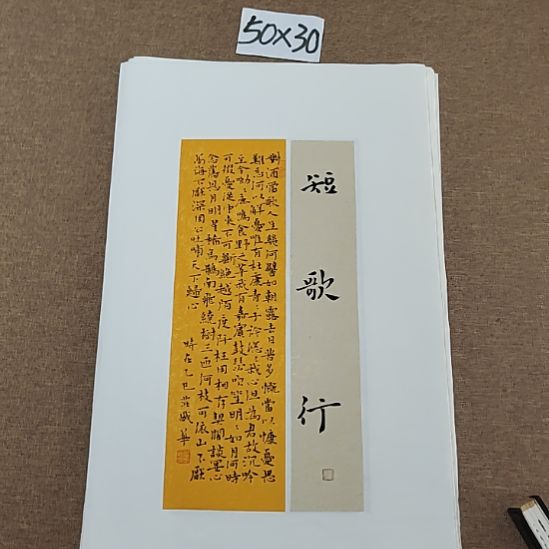 50X30
短歌行
對酒當歌人生幾何譬如朝露去日苦多慨當以慷憂思
難忘何以解憂唯有杜康青〻子衿悠〻我心但為君故沉吟
至今呦〻鹿鳴食野之苹我有嘉賓鼓瑟吹笙明〻如月何時
可掇憂從中來不可斷絕越陌度阡枉用相存契闊談讌心
念舊恩月明星稀烏鵲南飛繞樹三匝何枝可依山不厭
高海不厭深周公吐哺天下歸心
時在乙巳 華